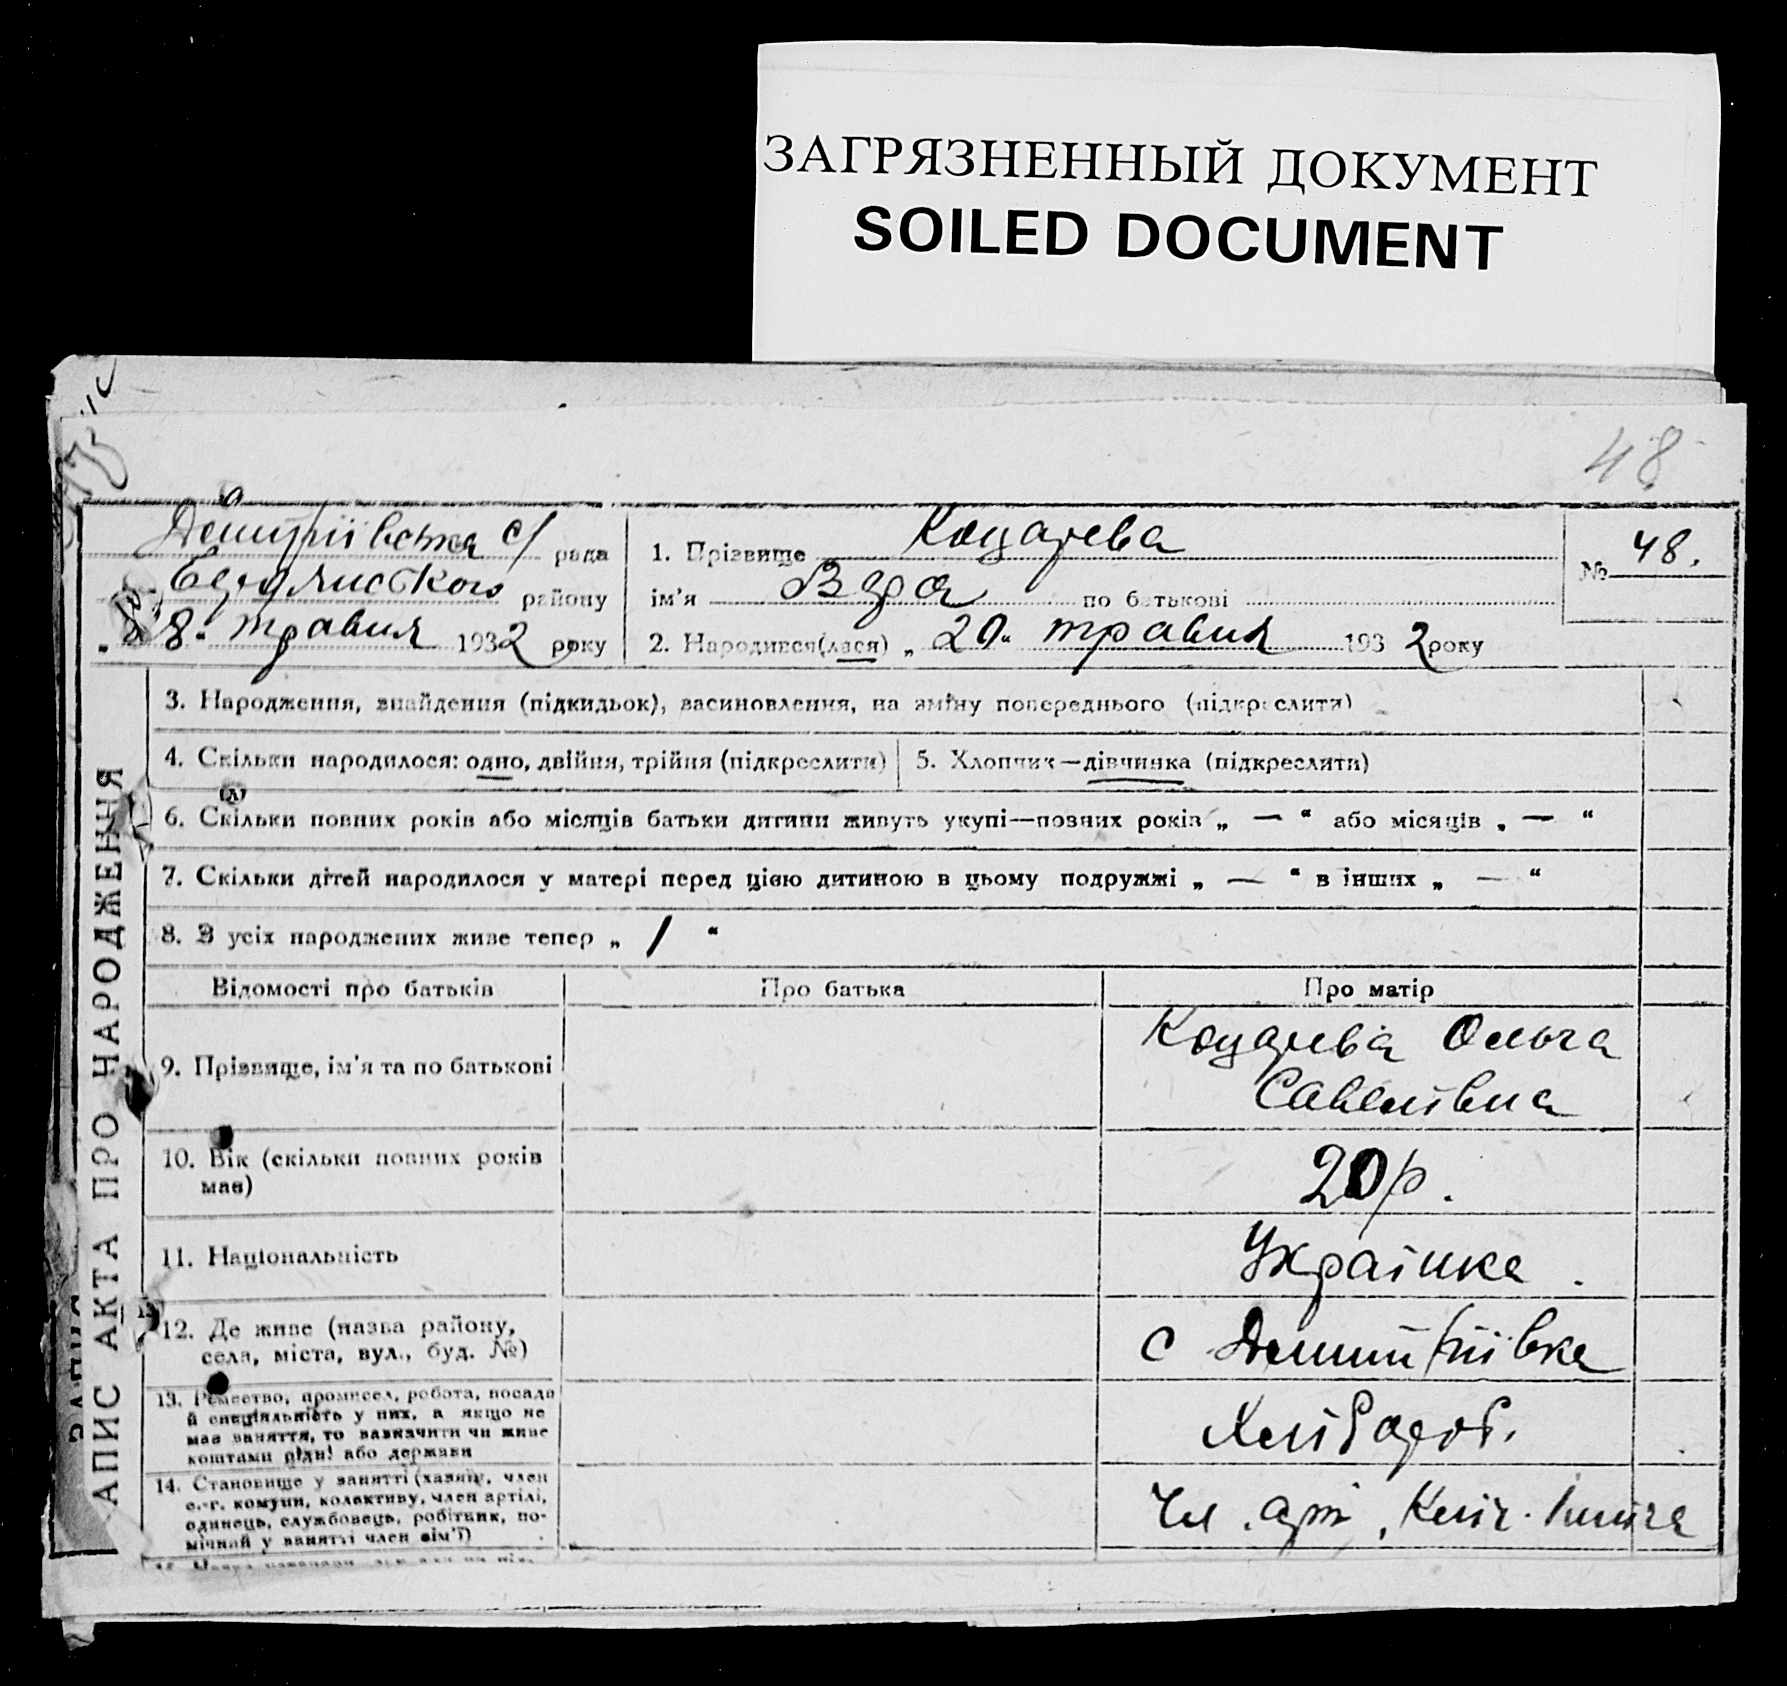 ЗАГРЯЗНЕННЫЙ ДОКУМЕНТ
SOILED DOCUMENT
48
Дмитріівська с/ рада
району
8. травня 1932 року
1. Прізвище Коцарева
ім'я Вера по батькові
2. Народився(лася) „ 20 “ травня 1932 року
№ 48.
ЗАПИС АКТА ПРО НАРОДЖЕННЯ
3. Народження, знайдення (підкидьок), засиновлення, на зміну попереднього (підкреслити)
4. Скільки народилося: одно, двійня, трійня (підкреслити)
5. Хлопчик—дівчинка (підкреслити)
6. Скільки повних років або місяців батьки дитини живуть укупі—повних років „ — “ або місяців „ — “
7. Скільки дітей народилося у матері перед цією дитиною в цьому подружжі „ — “ в інших „ — “
8. З усіх народжених живе тепер „ 1 “
Відомості про батьків
Про батька
Про матір
9. Прізвище, ім'я та по батькові
Коцарева Ольга
Савеліівна
10. Вік (скільки повних років
має)
20 р.
11. Національність
Украінка.
12. Де живе (назва району,
села, міста, вул., буд. №)
с Дмитріівка
13. Ремество, промисел, робота, посада
й спеціяльність у них, а якщо не
має заняття, то зазначити чи живе
коштами рідні або держави
Хліброб.
14. Становище у занятті (хазяїн, член
с.-г. комуни, колективу, член артілі,
одинець, службовець, робітник, по-
мічний у занятті член сім'ї)
Чл. арт. Ілліча